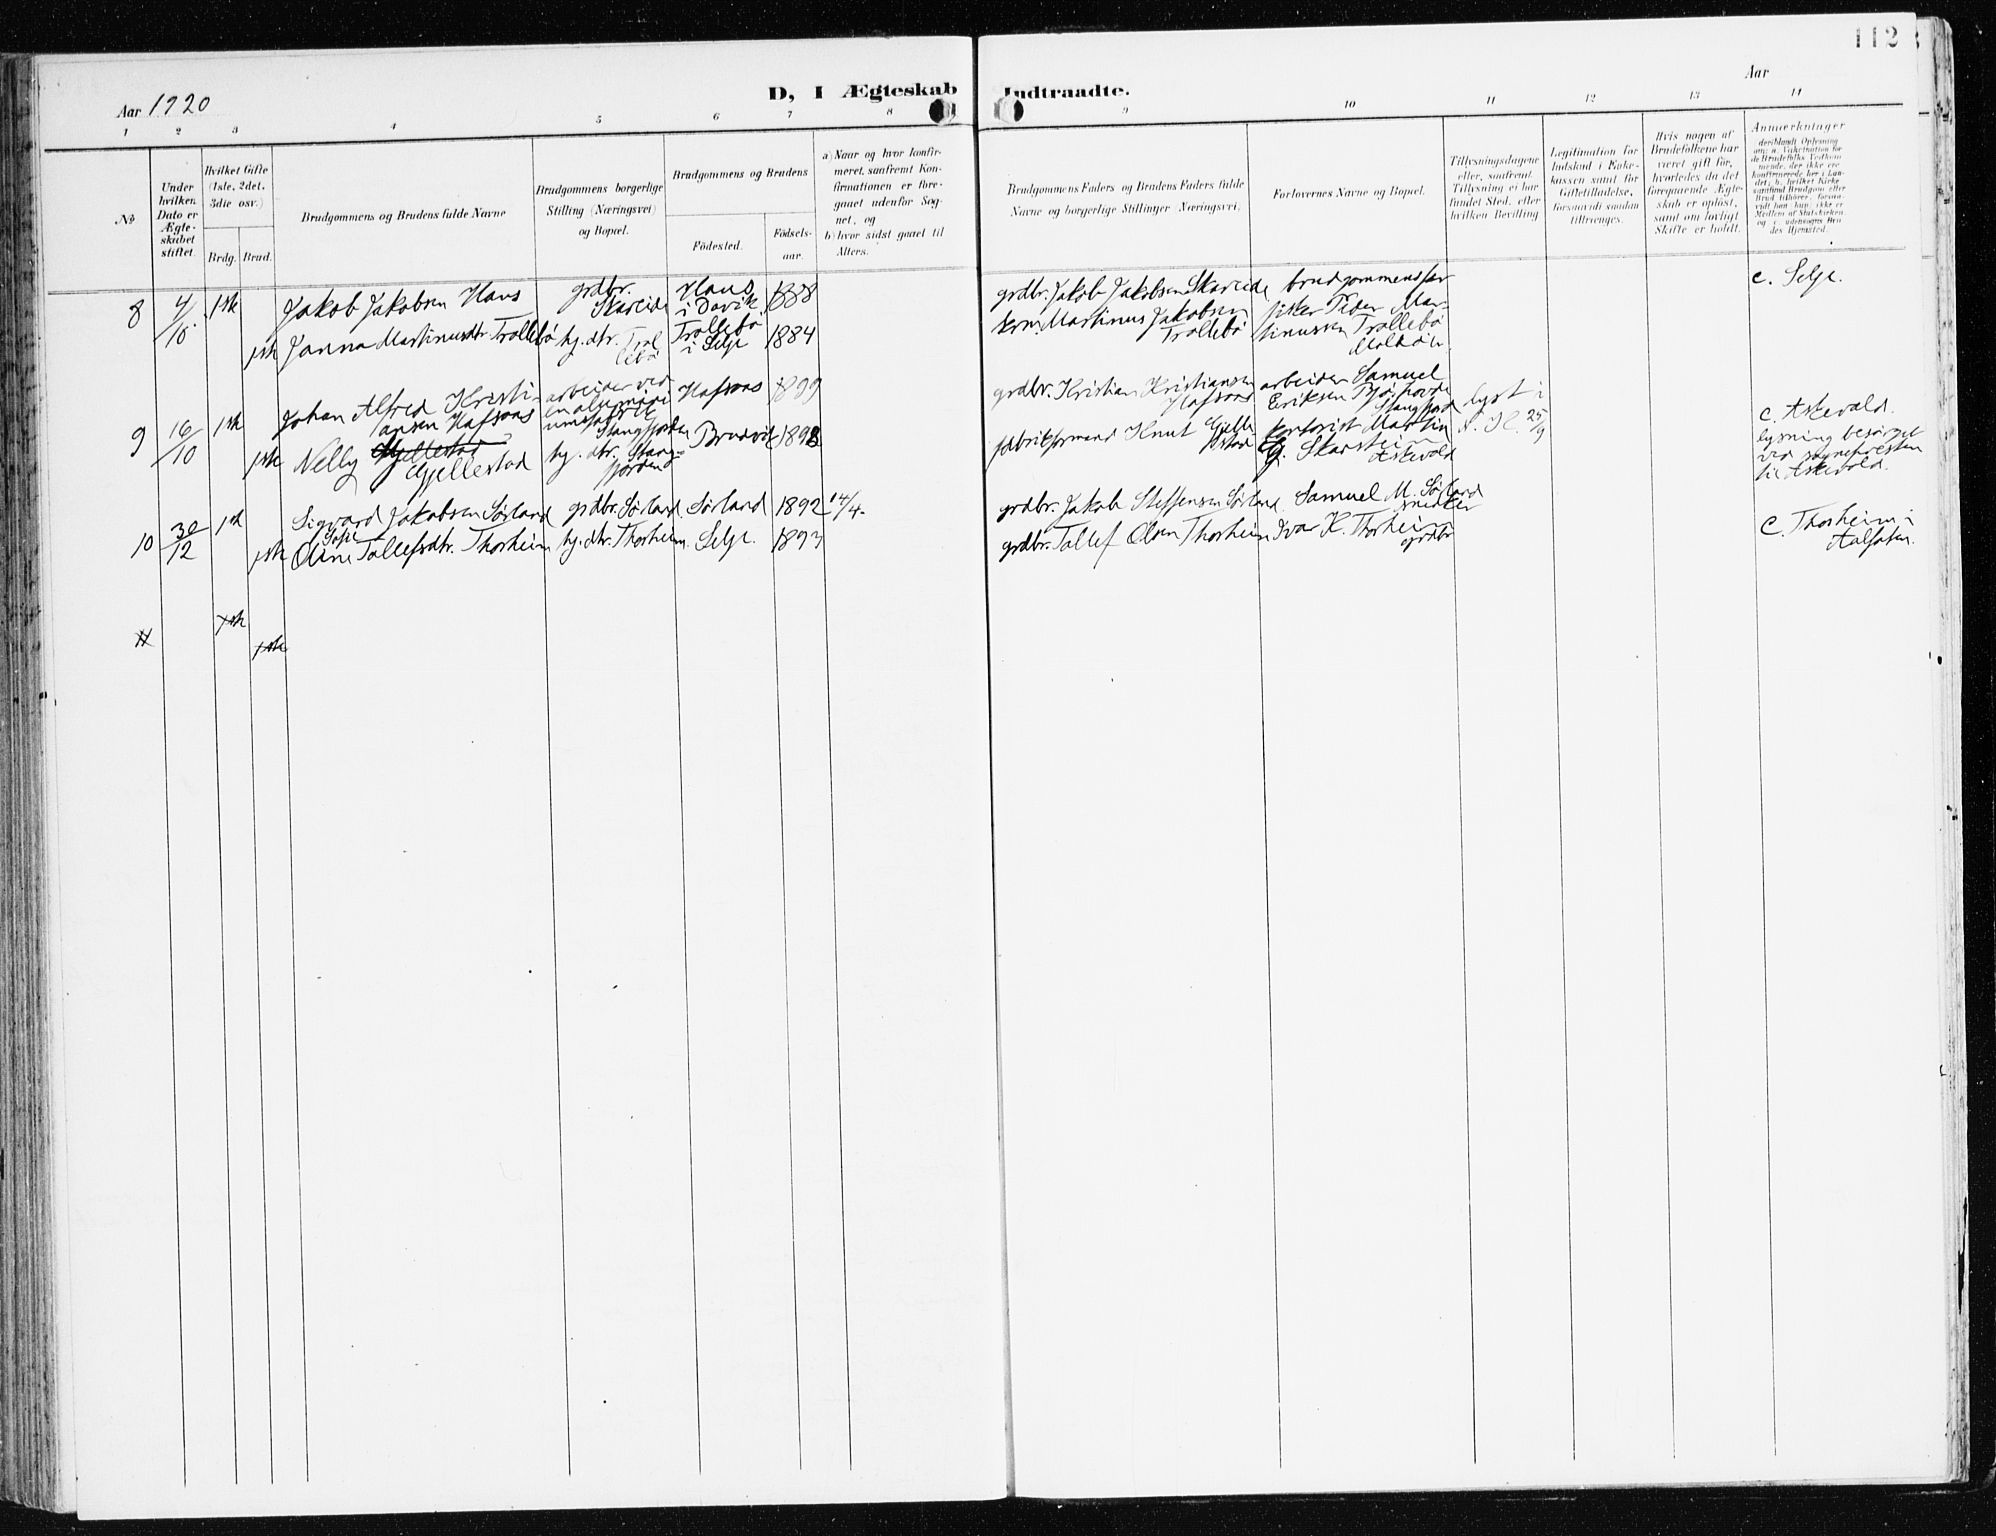 112
Aar 1920
D, I Ægteskab Indtraadte.
Aar
1 2 3 4 5 6 7 8 9 10 11 12 13 14
No
Under hvilken Dato er Ægteskabet stiftet.
Hvilket Gifte (1ste, 2det, 3die osv.)
Brdg. Brud.
Brudgommens og Brudens fulde Navne
Brudgommens borgerlige Stilling (Næringsvei) og Bopæl.
Brudgommens og Brudens
Födested.
Födselsaar.
a) Naar og hvor konfirmeret, saafremt Konfirmationen er foregaaet udenfor Sognet, og
b) hvor sidst gaaet til Alters.
Brudgommens Faders og Brudens Faders fulde Navne og borgerlige Stillinger (Næringsvei).
Forlovernes Navne og Bopæl.
Tillysningsdagene eller, saafremt Tillysning ei har fundet Sted, efter hvilken Bevilling
Legitimation for Indskud i Enkekassen samt for Giftetilladelse, forsaavidt saadan tiltrænges.
Hvis nogen af Brudefolkene har været gift för, hvorledes da det foregaaende Ægteskab er oplöst, samt om lovligt Skifte er holdt.
Anmærkninger
8 4/10 1ste Jakob Jakobsen Haus grdbr. Skareide Haus i Davik 1888
1ste Janna Martinusdtr. Trollebø hj. dtr. Trollebø Trollebø i Selje 1884
grdbr. Jakob Jakobsen Skareide
Martinus Jakobsen Trollebø
brudgommens far
fisker Peder Martinussen Trollebø
c. Selje.
9 16/10 1ste Johan Alfred Kristiansen Hafsaas arbeider ved Stangfjorden Hafsaas 1899
1ste Nelly Gjellestad Gjellestad hj. dtr. Stangfjorden 1898
grdbr. Kristian Kristiansen Hafsaas
fabrikformand Knut Gjellestad
arbeider Samuel Eriksen Stangfjord
kontorist Martin Skarstein Askevold
lyst i N. K. 25/9
c. Askevold.
lysning besørget ved sognepresten til Askevold.
10 30/12 1ste Sigvard Jakobsen Sørland grdbr. Sørland Sørland 1892 14/4.
1ste Oline Sofie Tollefsdtr. Thorheim hj. dtr. Thorheim Selje. 1893
grdbr. Jakob Steffensen Sørland
grdbr. Tollef Olsen Thorheim
Samuel M. Sørland snekker
Ivar K. Thorheim grdbr
c. Thorheim i Aalfoten.
11 1ste
1ste